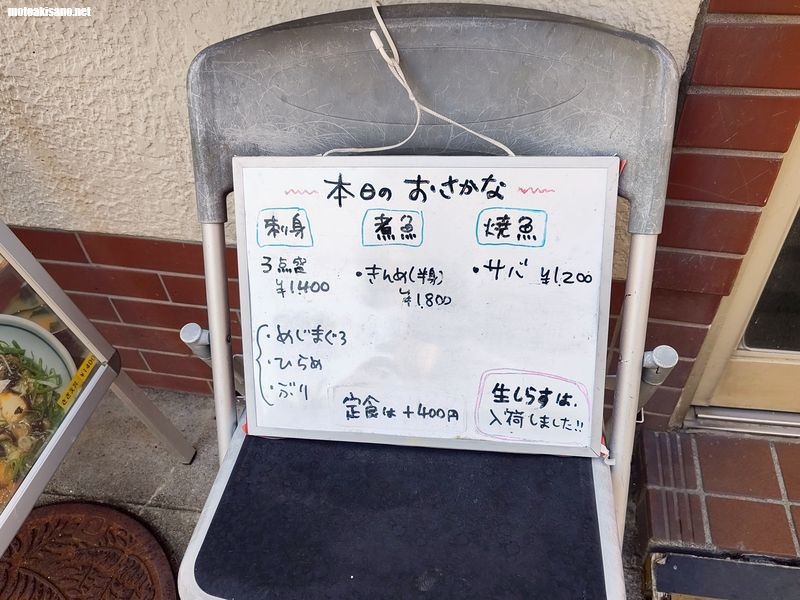 motoakisano.net
本日の おさかな
刺身
3点盛
¥1,400
・めじまぐろ
・ひらめ
・ぶり
煮魚
・きんめ(半身)
¥1,800
焼魚
・サバ ¥1,200
定食は +400円
生しらすは、
入荷しました!!